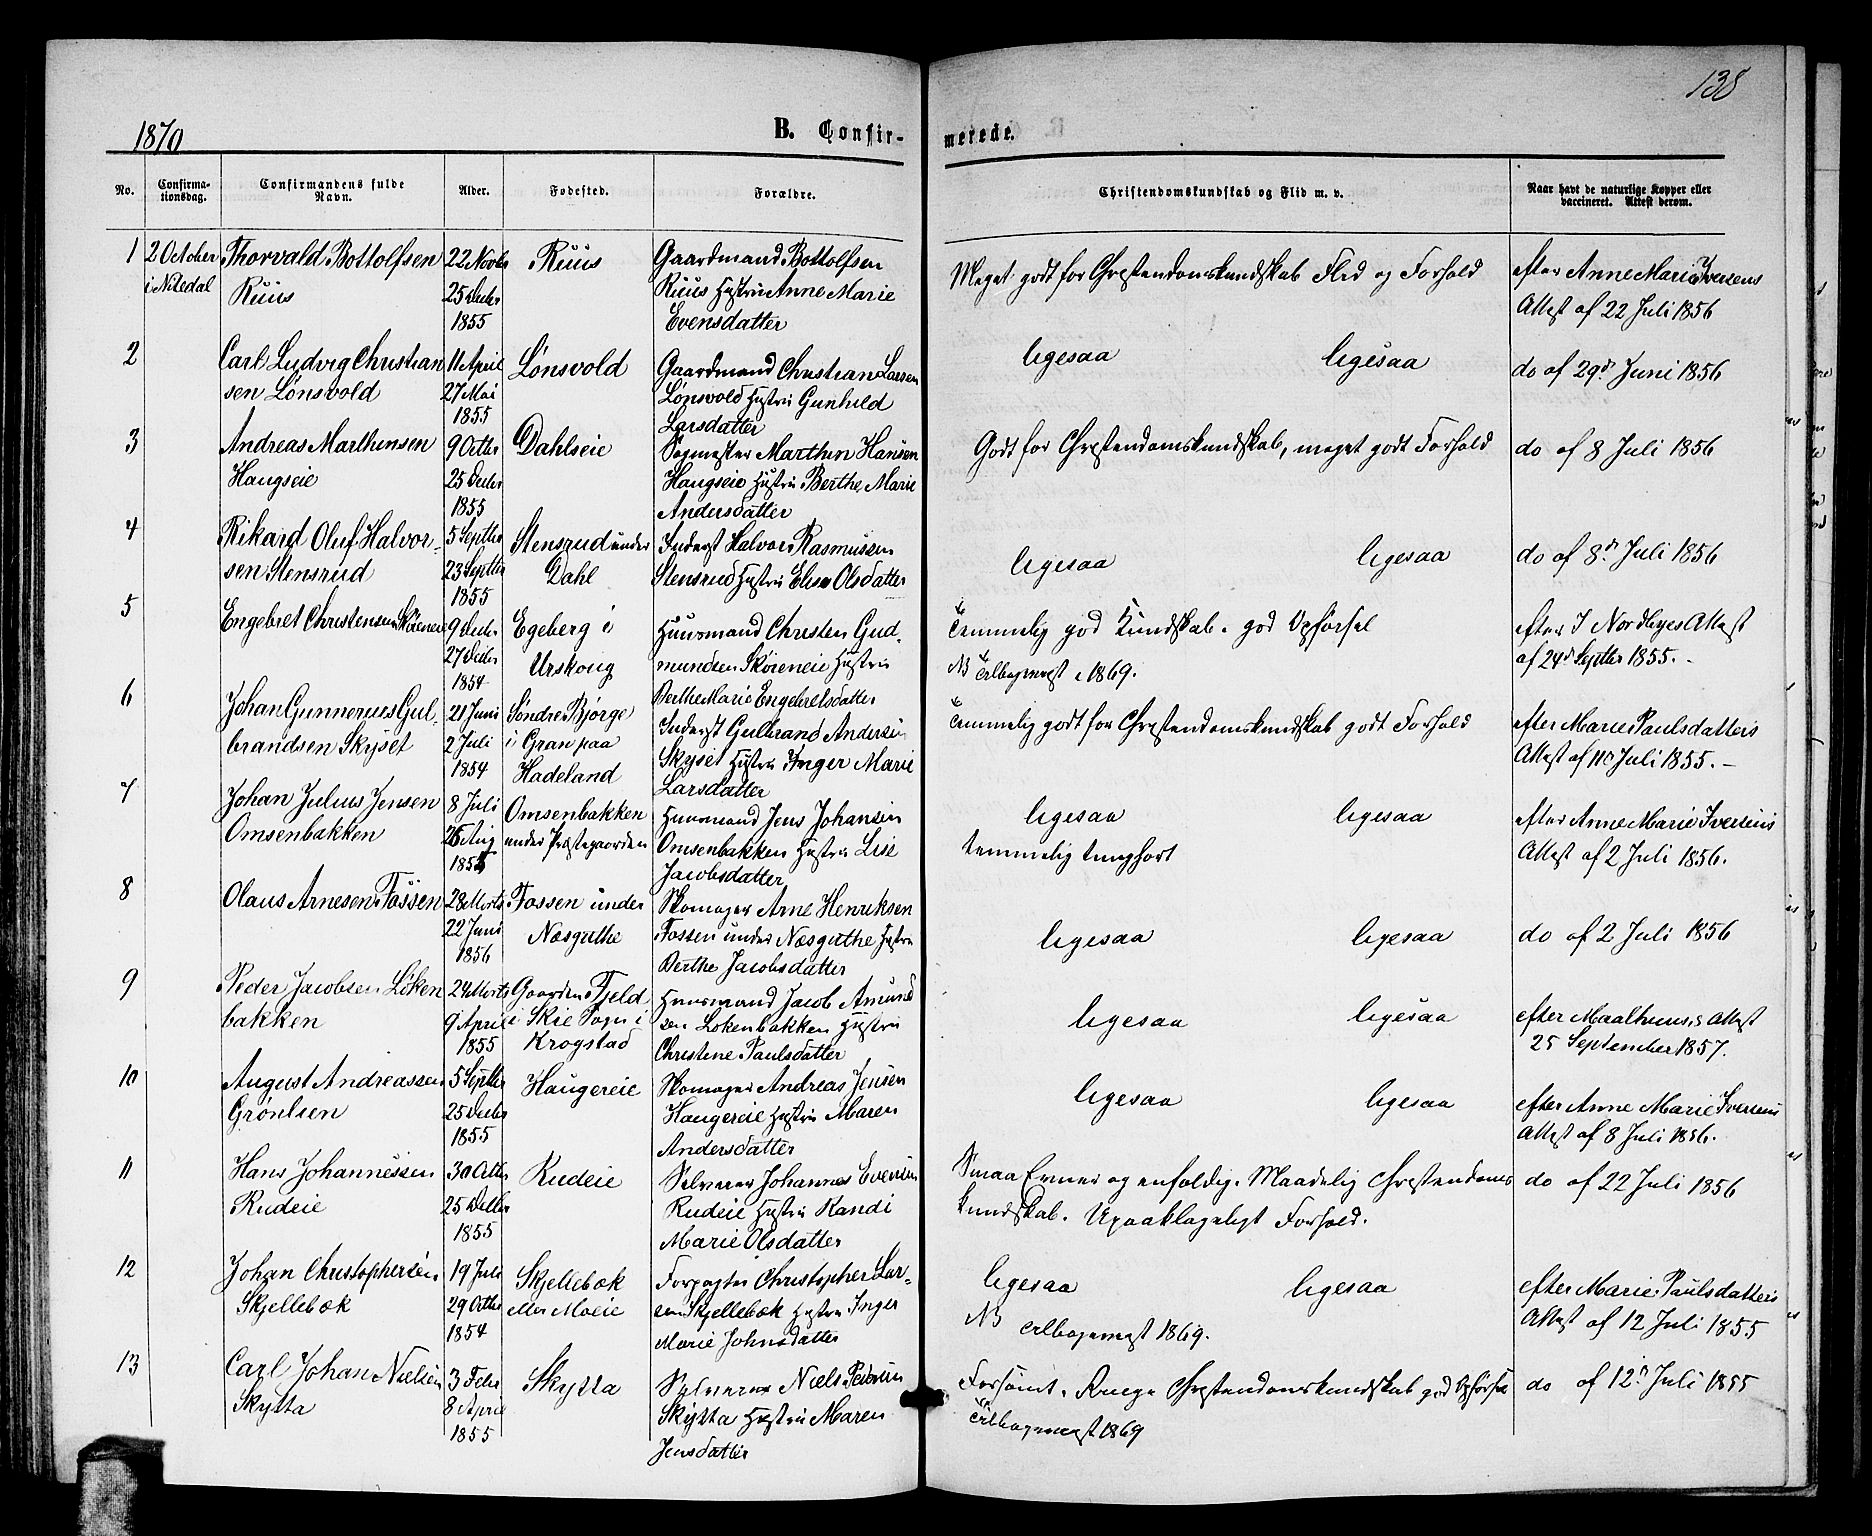 138
1870
B. Confir-
merede.
No.
Confirma-
tionsdag.
Confirmandens fulde
Navn.
Alder.
Fødested.
Forældre.
Christendomskundskab og Flid m. v.
Naar havt de naturlige Kopper eller
vaccineret. Attest derom.
1
2 October
i Nitedal
Thorvald Bottolfsen
Ruus
22 Novbr
25 Decbr
1855
Ruus
Gaardmand Bottolfsen
Ruus Hustru Anne Marie
Evensdatter
Meget godt for Christendomskundskab Flid og Forhold
efter Anne Marie Iversens
Attest af 22 Juli 1856
2
Carl Ludvig Christian
sen Lönsvold
11 April
27 Mai
1855
Lönsvold
Gaardmand Christian Larsen
Lönsvold Hustru Gunhild
Larsdatter
ligesaa ligesaa
do af 29d Juni 1856
3
Andreas Marthinsen
Haugseie
9 Octbr
25 Decbr
1855
Dahlseie
Sagmester Marthin Hansen
Haugseie Hustru Berthe Marie
Andersdatter
Godt for Christendomskundskab, meget godt Forhold
do af 8 Juli 1856
4
Rikard Oluf Halvor-
sen Stensrud
5 Septbr
23 Septbr
1855
Stensrud under
Dahl
Inderst Halvor Rasmussen
Stensrud Hustru Elise Olsdatter
ligesaa ligesaa
do af 8d Juli 1856
5
Engebret Christensen Sköieneie
9 Decbr
27 Decbr
1854
Egeberg i
Urskoug
Huusmand Christen Gud-
mundsen Sköieneie Hustru
Berthe Marie Engebretsdatter
Temmelig god Kundskab. god Opförsel
NB Tilbagevist i 1869.
efter I Nordbyes Attest
af 24d Septbr 1855.-
6
Johan Gunnerius Gul-
brandsen Skyset
21 Juni
2 Juli
1854
Söndre Bjørge
i Gran paa
Hadeland
Inderst Gulbrand Andersen
Skyset Hustru Inger Marie
Larsdatter
Temmelig godt for Christendomskundskab godt Forhold
efter Marie Paulsdatters
Attest af 11te Juli 1855.-
7
Johan Julius Jensen
Omsenbakken
8 Juli
26 Aug
1855
Omsenbakken
under Præstegaarden
Huusmand Jens Johansen
Omsenbakken Hustru Lise
Jacobsdatter
ligesaa ligesaa
temmelig tunghört
efter Anne Marie Iversens
Attest af 2 Juli 1856.
8
Olaus Arnesen Fossen
28 Marts
22 Juni
1856
Fossen under
Næsguthe
Skomager Arne Henriksen
Fossen under Næsguthe Hustru
Berthe Jacobsdatter
ligesaa ligesaa
do af 2 Juli 1856
9
Peder Jacobsen Löken
bakken
24 Marts
9 April
1855
Gaarden Fjeld
i Skie Sogn i
Krogstad
Huusmand Jacob Amund
sen Lökenbakken Hustru
Christine Paulsdatter
ligesaa ligesaa
efter Maalhuus,s Attest
25 September 1857.
10
August Andreassen
Grönlien
5 Septbr
25 Decbr
1855
Haugereie
Skomager Andreas Jensen
Haugereie Hustru Maren
Andersdatter
ligesaa ligesaa
efter Anne Marie Iversens
Attest af 8 Juli 1856.
11
Hans Johannesen
Rudeie
30 Octbr
25 Decbr
1855
Rudeie
Selveier Johannes Evensen
Rudeie Hustru Randi
Marie Olsdatter
Smaa Evner og enfoldig. Maadelig Christendoms
kundskab. Upaaklageligt Forhold.
do af 22 Juli 1856
12
Johan Christophersen
Skjellebæk
19 Juli
29 Octbr
1854
Skjellebæk
eller Moeie
Forpagter Christopher Lar-
sen Skjellebæk Hustru Inger
Marie Johnsdatter
ligesaa ligesaa
NB Tilbagevist 1869.
efter Marie Paulsdatters
Attest af 12 Juli 1855
13
Carl Johan Nielsen
Skytta
3 Febr
8 April
1855
Skytta
Selveier Niels Pedersen
Skytta Hustru Maren
Jensdatter
Forsömt. Ringe Christendomskundskab god Opförsel
Tilbagevist 1869
do af 12d Juli 1855